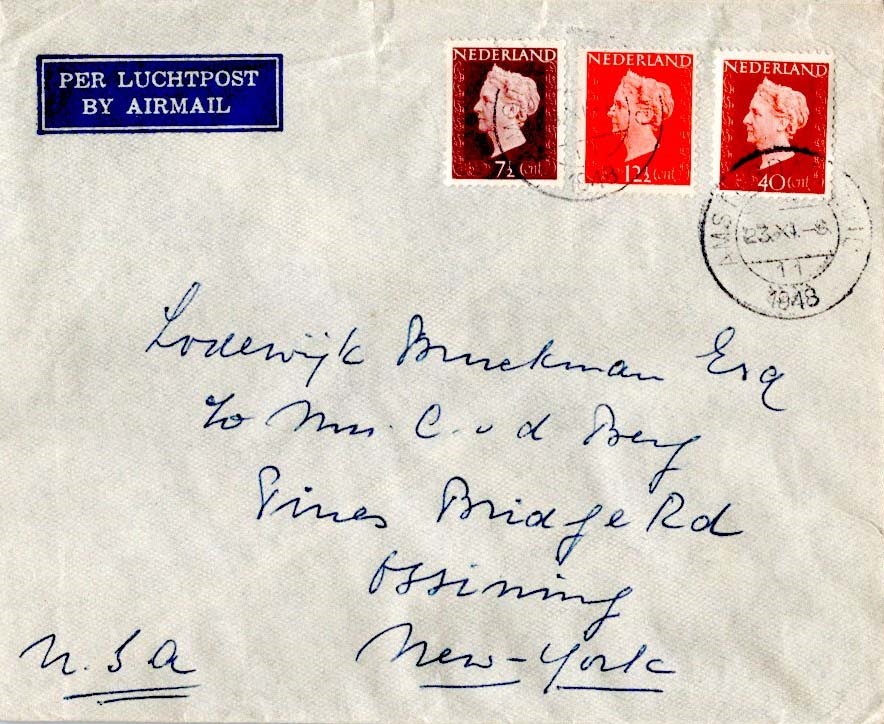 PER LUCHTPOST
BY AIRMAIL
NEDERLAND
7½ cent
NEDERLAND
12½ cent
NEDERLAND
40 cent
23.XI.
11
1948
Lodewijk Bruckman Esq
c/o Mrs. C. v d Berg
Pines Bridge Rd
Ossining
New-York
U.S.A